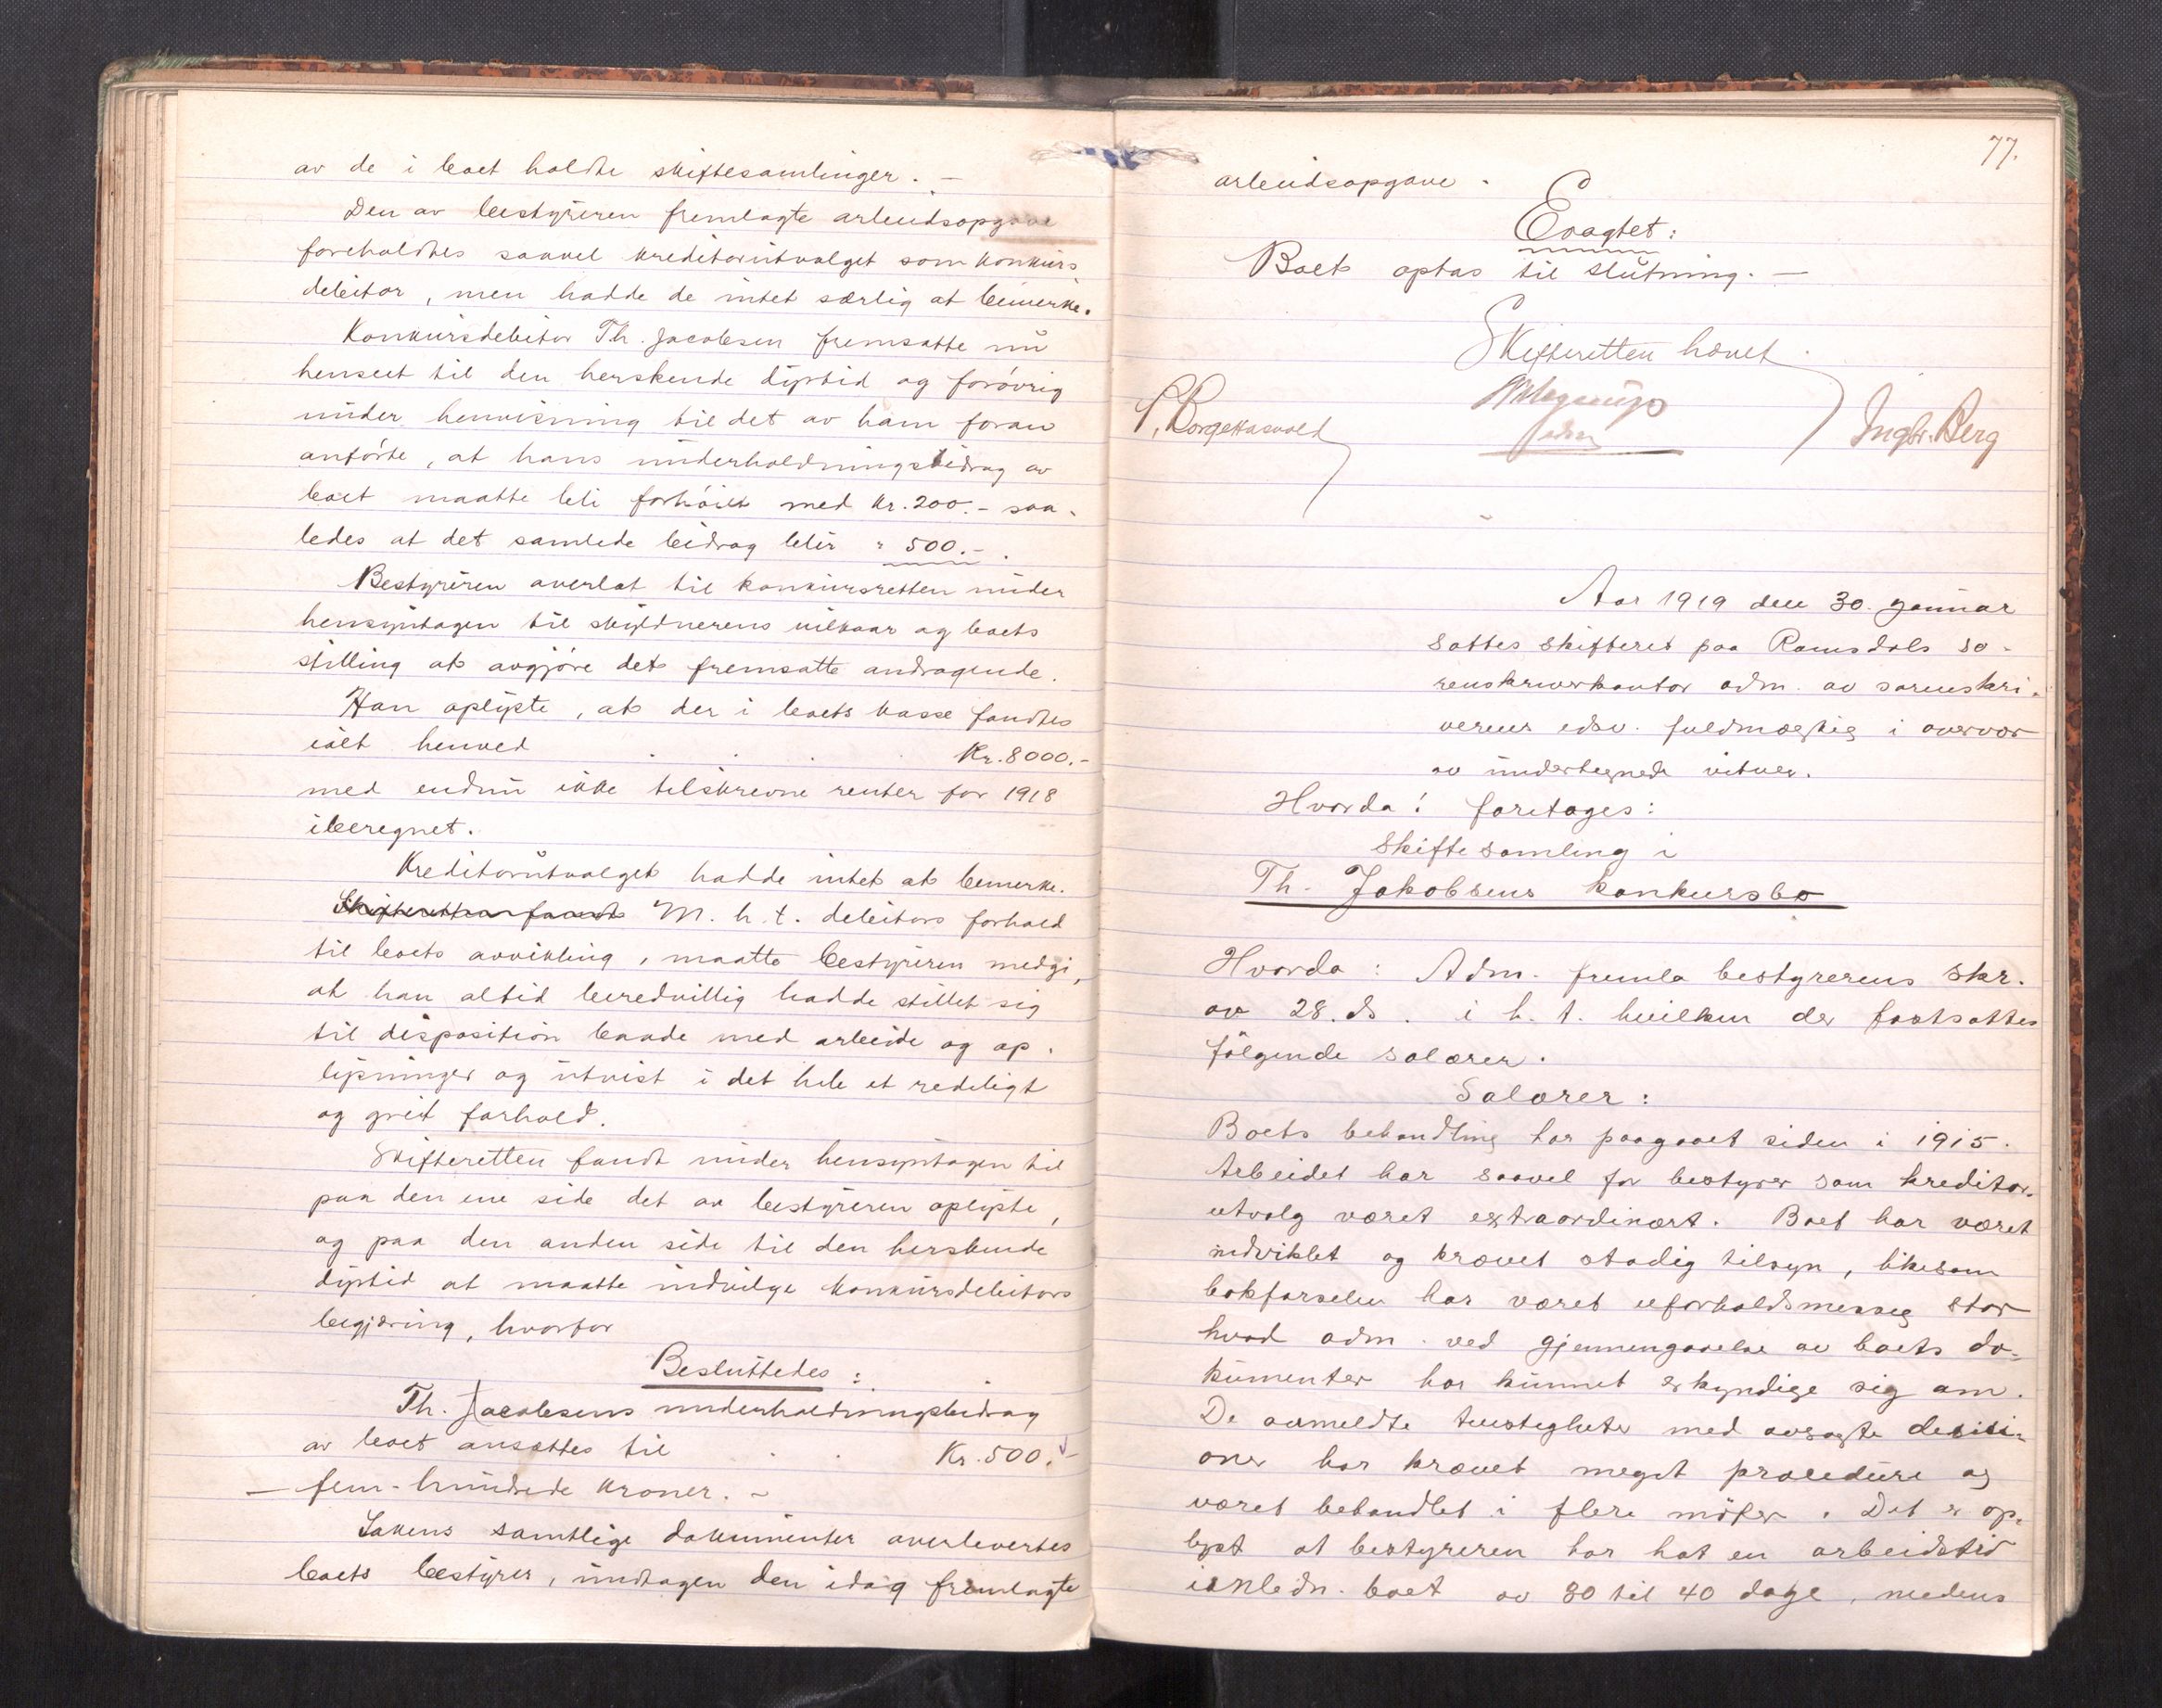 av de i boet holdte skiftesamlinger. –
Den av bestyreren fremlagte arbeidsopgave
foreholdtes saavel kreditorutvalget som konkurs
debitor, men hadde de intet særlig at bemerke.
Konkursdebitor Th. Jacobsen fremsatte nu
henseet til den herskende dyrtid og forøvrig
under henvisning til det av ham foran
anførte, at hans underholdningsbidrag av
boet maatte bli forhøiet med kr. 200.- saa-
ledes at det samlede bidrag blir " 500.-.
Bestyreren overlot til konkursretten under
hensyntagen til skyldnerens vilkaar og boets
stilling at avgjøre det fremsatte andragende.
Han oplyste, at der i boets kasse fandtes
ialt henved . . . Kr. 8000.-
med endnu ikke tilskrevne renter for 1918
iberegnet.
Kreditorutvalget hadde intet at bemerke.
Skifteretten fandt M. h. t. debitors forhold
til boets avvikling, maatte bestyreren medgi,
at han altid beredvillig hadde stillet sig
til disposition baade med arbeide og op-
lysninger og utvist i det hele et redeligt
og greit forhold.
Skifteretten fandt under hensyntagen til
paa den ene side det av bestyreren oplyste,
og paa den anden side til den herskende
dyrtid at maatte indvilge konkursdebitors
begjæring, hvorfor
Besluttedes:
Th. Jacobsens underholdningsbidrag
av boet ansættes til . . Kr. 500.-
– fem-hundrede kroner. –
Sakens samtlige dokumenter overlevertes
boets bestyrer, undtagen den idag fremlagte
77.
arbeidsopgave.
Eragtet:
Boet optas til slutning. –
Skifteretten hævet.
edsv
Ingbr. Berg
Aar 1919 den 30. januar
sattes skifteret paa Romsdals so-
renskriverkontor adm. av sorenskri-
verens edsv. fuldmægtig i overvær
av undertegnede vitner.
Hvorda! foretages:
Skiftesamling i
Th. Jakobsens konkursbo
Hvorda: Adm. fremla bestyrerens skr.
av 28. ds. i h. t. hvilken der fastsattes
følgende salærer.
Salærer:
Boets behandling har paagaaet siden i 1915.
Arbeidet har saavel for bestyrer som kreditor-
utvalg været extraordinært. Boet har været
indviklet og krævet stadig tilsyn, likesom
bokførselen har været uforholdsmessig stor
hvad adm. ved gjennemgaaelse av boets do-
kumenter har kunnet erkyndige sig om.
De anmeldte tvistigheter med avsagte desisi-
oner har krævet meget procedure og
været behandlet i flere møter. Det er op-
lyst at bestyreren har hat en arbeidstid
ianledn. boet av 30 til 40 dage, medens